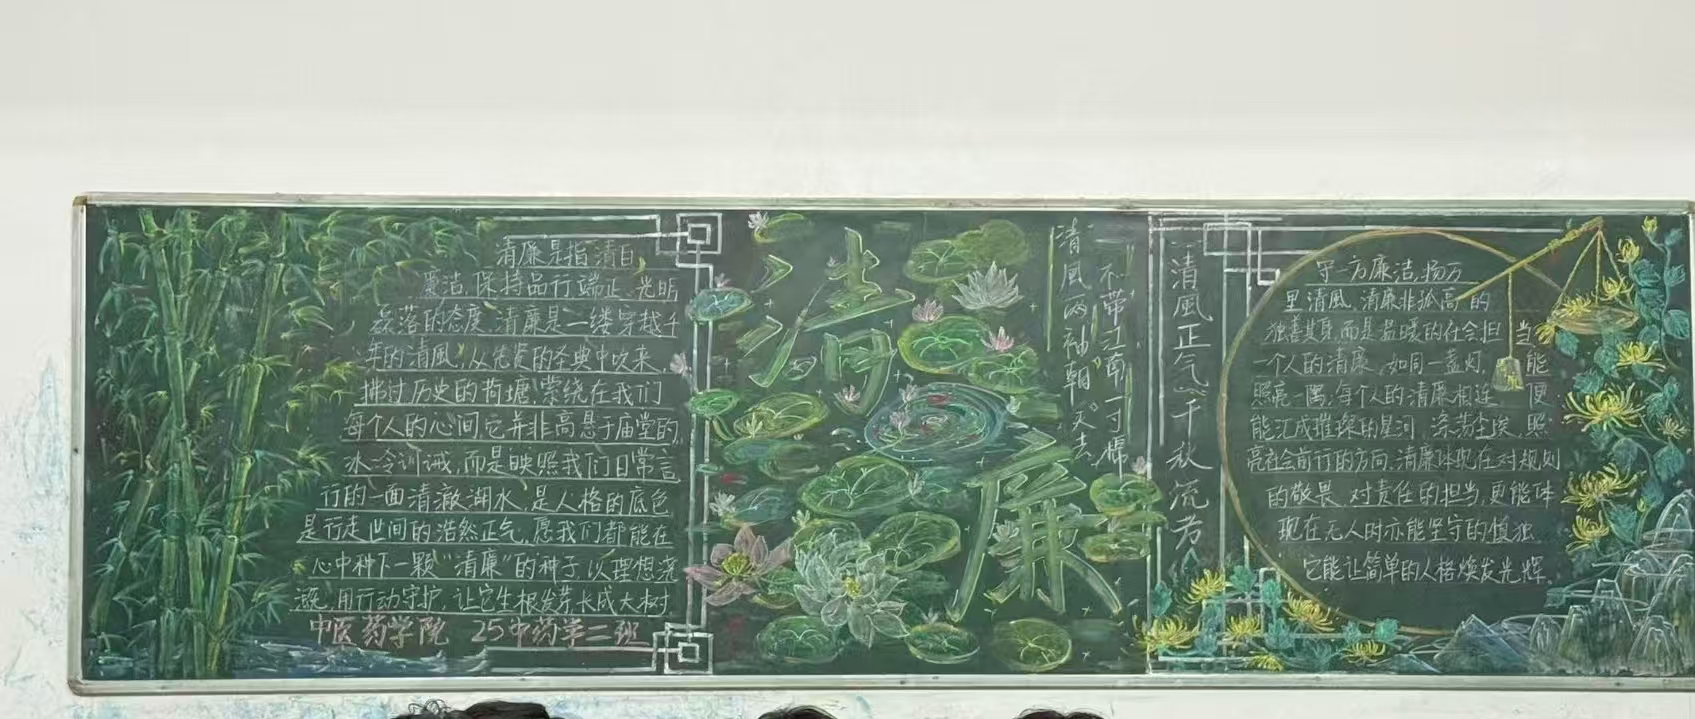 清廉是指清白
廉洁,保持品行端正、光明
磊落的态度,清廉是一缕穿越千
年的清風,从先贤的圣典中吹来,
拂过历史的荷塘,萦绕在我们
每个人的心间,它并非高悬于庙堂的
冰冷训诫,而是映照我们日常言
行的一面清澈湖水,是人格的底色
是行走世间的浩然正气,愿我们都能在
心中种下一颗“清廉”的种子,以理想浇
灌,用行动守护,让它生根发芽长成大树.
中医药学院 25中药学二班
清
廉
清風两袖朝天去
不带江南一寸棉
清風正气
千秋流芳
守一方廉洁,扬万
里清風,清廉非孤高的
独善其身,而是温暖的社会担当
一个人的清廉,如同一盏灯,能
照亮一隅,每个人的清廉相连 便
能汇成璀璨的星河,涤荡尘埃,照
亮社会前行的方向,清廉体现在对规则
的敬畏,对责任的担当,更能体
现在无人时亦能坚守的慎独.
它能让简单的人格焕发光辉.